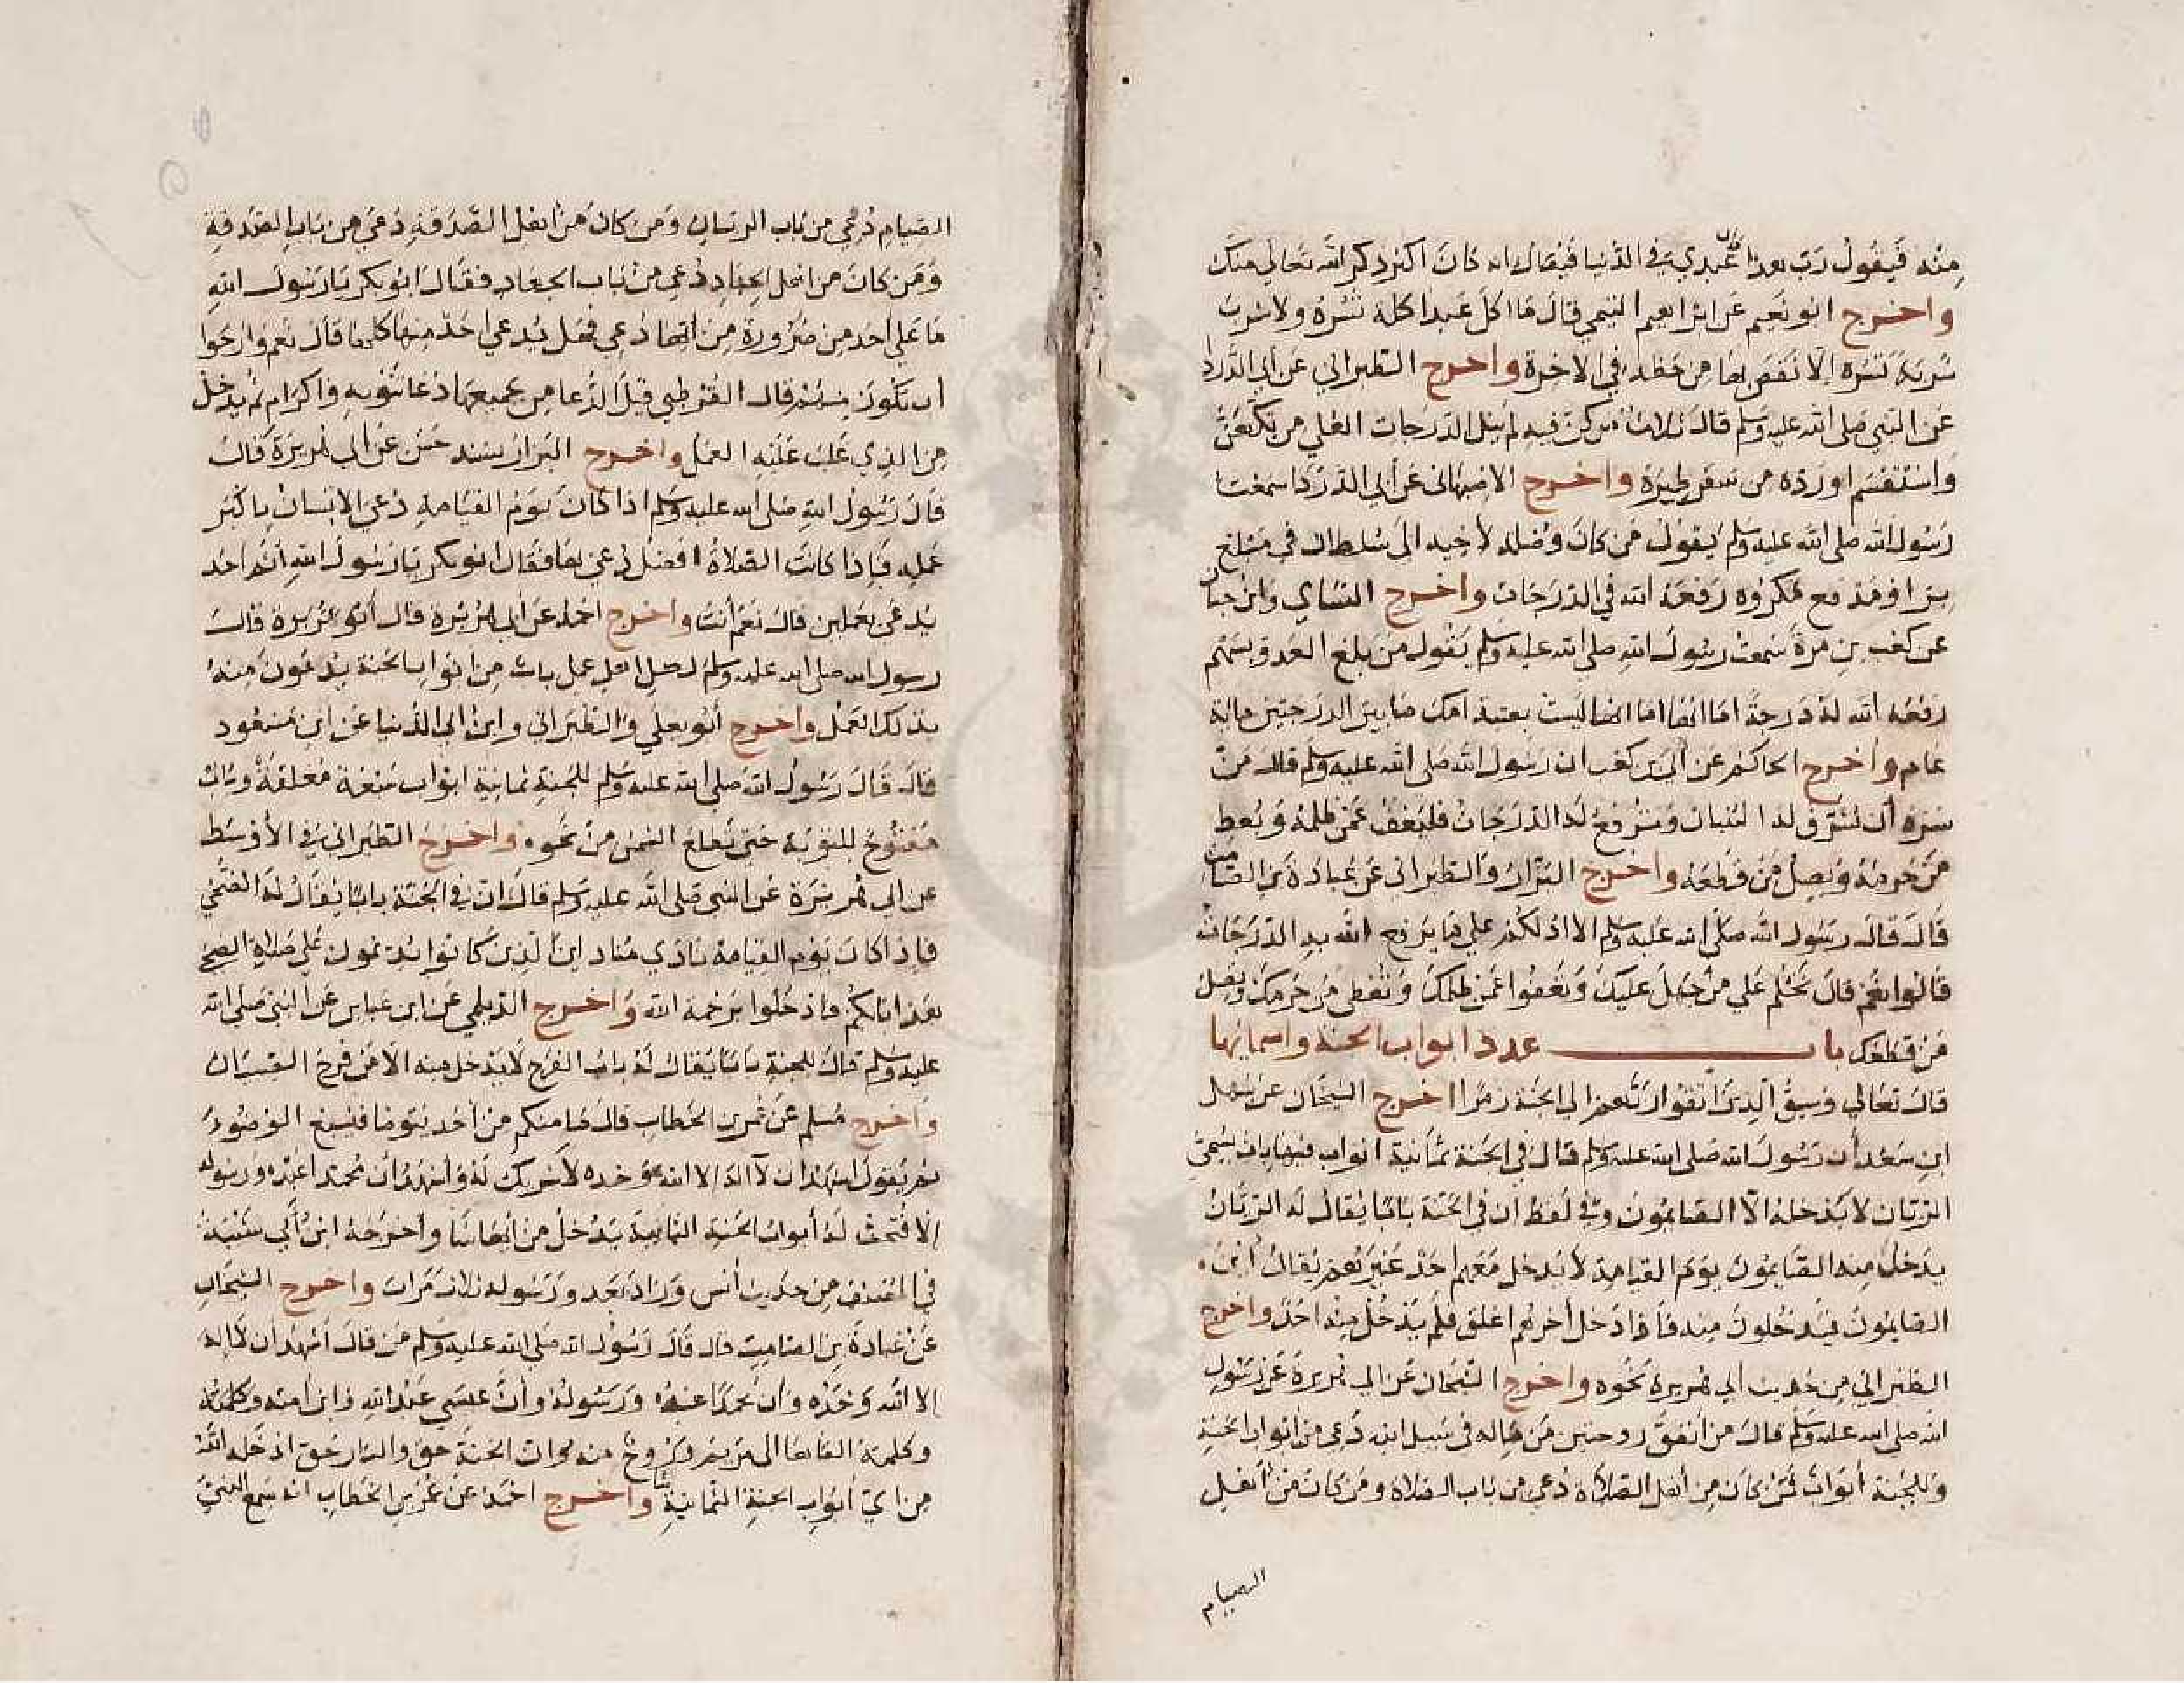 منه فيقول رب هذا عبدي في الدنيا فيقال انه كان اكثر ذكر الله تعالي منك
واخرج ابو نعيم عن ابراهيم التيمي قال ما اكل عبدا كلة تسره ولا شرب
شربة تسره الا نقص بها من حظه في الاخرة واخرج الطبراني عن أبي الدردا
عن النبي صلى الله عليه وسلم قال ثلاث من كن فيه لم ينل الدرجات العلي من تكهن
واستقسم اورده من سفر طيرة واخرج الاصبهاني عن أبي الدردا سمعت
رسول الله صلى الله عليه وسلم يقول من كان وصله لأخيه الى سلطان في مبلغ
بر او مدفع مكروه رفعه الله في الدرجات واخرج النساي وابن حبان
عن كعب بن مرة سمعت رسول الله صلى الله عليه وسلم يقول من بلغ العدو بسهم
رفعه الله له درجة اما انها اما انها ليست بعتبة امك ما بين الدرجتين ماية
عام واخرج الحاكم عن أبي بن كعب ان رسول الله صلى الله عليه وسلم قال من
سره أن يشرف له البنيان وترفع له الدرجات فليعف عمن ظلمه ويعط
من حرمه ويصل من قطعه واخرج البزار والطبراني عن عبادة بن الصامت
قال قال رسول الله صلى الله عليه وسلم الا ادلكم علي ما يرفع الله به الدرجات
قالوا نعم قال تحلم علي من جهل عليك وتعفوا عمن ظلمك وتعطي من حرمك وتصل
من قطعك باب عدد ابواب الجنة واسمائها
قال تعالي وسيق الذين اتقوا ربهم الي الجنة زمرا اخرج الشيخان عن سهل
ابن سعد أن رسول الله صلى الله عليه وسلم قال في الجنة ثمانية ابواب فيها باب يسمي
الريان لا يدخله الا الصايمون وفي لفظ ان في الجنة بابا يقال له الريان
يدخل منه الصايمون يوم القيامة لا يدخل معهم احد غيرهم يقال أين
الصايمون فيدخلون منه فاذا دخل أخرهم اغلق فلم يدخل منه احد واخرج
الطبراني من حديث أبي هريرة نحوه واخرج الشيخان عن ابي هريرة عن رسول
الله صلى الله عليه وسلم قال من أنفق زوجين من ماله في سبيل الله دعي من أبواب الجنة
وللجنة أبواب فمن كان من أهل الصلاة دعي من باب الصلاة ومن كان من أهل
الصيام
الصيام دعي من باب الريان ومن كان من أهل الصدقة دعي من باب الصدقة
ومن كان من اهل الجهاد دعي من باب الجهاد فقال ابو بكر يا رسول الله
ما علي احد من ضرورة من ايها دعي فهل يدعي احد منها كلها قال نعم وارجوا
ان تكون منهم قال القرطبي قيل الدعا من جميعها دعا تنويه واكرام ثم يدخل
من الذي غلب عليه العمل واخرج البزار بسند حسن عن ابي هريرة قال
قال رسول الله صلى الله عليه وسلم اذا كان يوم القيامة دعي الانسان باكثر
عمله فإذا كانت الصلاة افضل دعي بها فقال ابو بكر يا رسول الله أثم احد
يدعي بعملين قال نعم أنت واخرج احمد عن أبي هريرة قال أبو هريرة قال
رسول الله صلى الله عليه وسلم لكل اهل عمل باب من ابواب الجنة يدعون منه
بذلك العمل واخرج أبو يعلي والطبراني وابن ابي الدنيا عن ابن مسعود
قال قال رسول الله صلى الله عليه وسلم للجنة ثمانية ابواب سبعة مغلقة وباب
مفتوح للتوبة حتى تطلع الشمس من نحوه واخرج الطبراني في الأوسط
عن ابي هريرة عن النبي صلى الله عليه وسلم قال ان في الجنة بابا يقال له الضحي
فاذا كان يوم القيامة نادي مناد اين الذين كانوا يديمون علي صلاة الضحى
هذا بابكم فادخلوا برحمة الله واخرج الديلمي عن ابن عباس عن النبي صلى الله
عليه وسلم قال للجنة بابا يقال له باب الفرح لا يدخل منه الا من فرح الصبيان
واخرج مسلم عن عمر بن الخطاب قال ما منكم من أحد يتوضا فيسبغ الوضوء
ثم يقول اشهد ان لا اله الا الله وحده لا شريك له واشهد أن محمدا عبده ورسوله
إلا فتحت له أبواب الجنة الثمانية يدخل من أيها شا وأخرجه ابن أبي شيبة
في المصنف من حديث أنس وزاد بعد ورسوله ثلاث مرات واخرج الشيخان
عن عبادة بن الصامت قال قال رسول الله صلى الله عليه وسلم من قال أشهد ان لا إله
إلا الله وحده وان محمدا عبده ورسوله وأن عيسي عبد الله وابن امته وكلمته
وكلمته القاها الى مريم وروح منه وان الجنة حق والنار حق ادخله الله
من اي أبواب الجنة الثمانية شا واخرج احمد عن عمر بن الخطاب انه سمع النبي